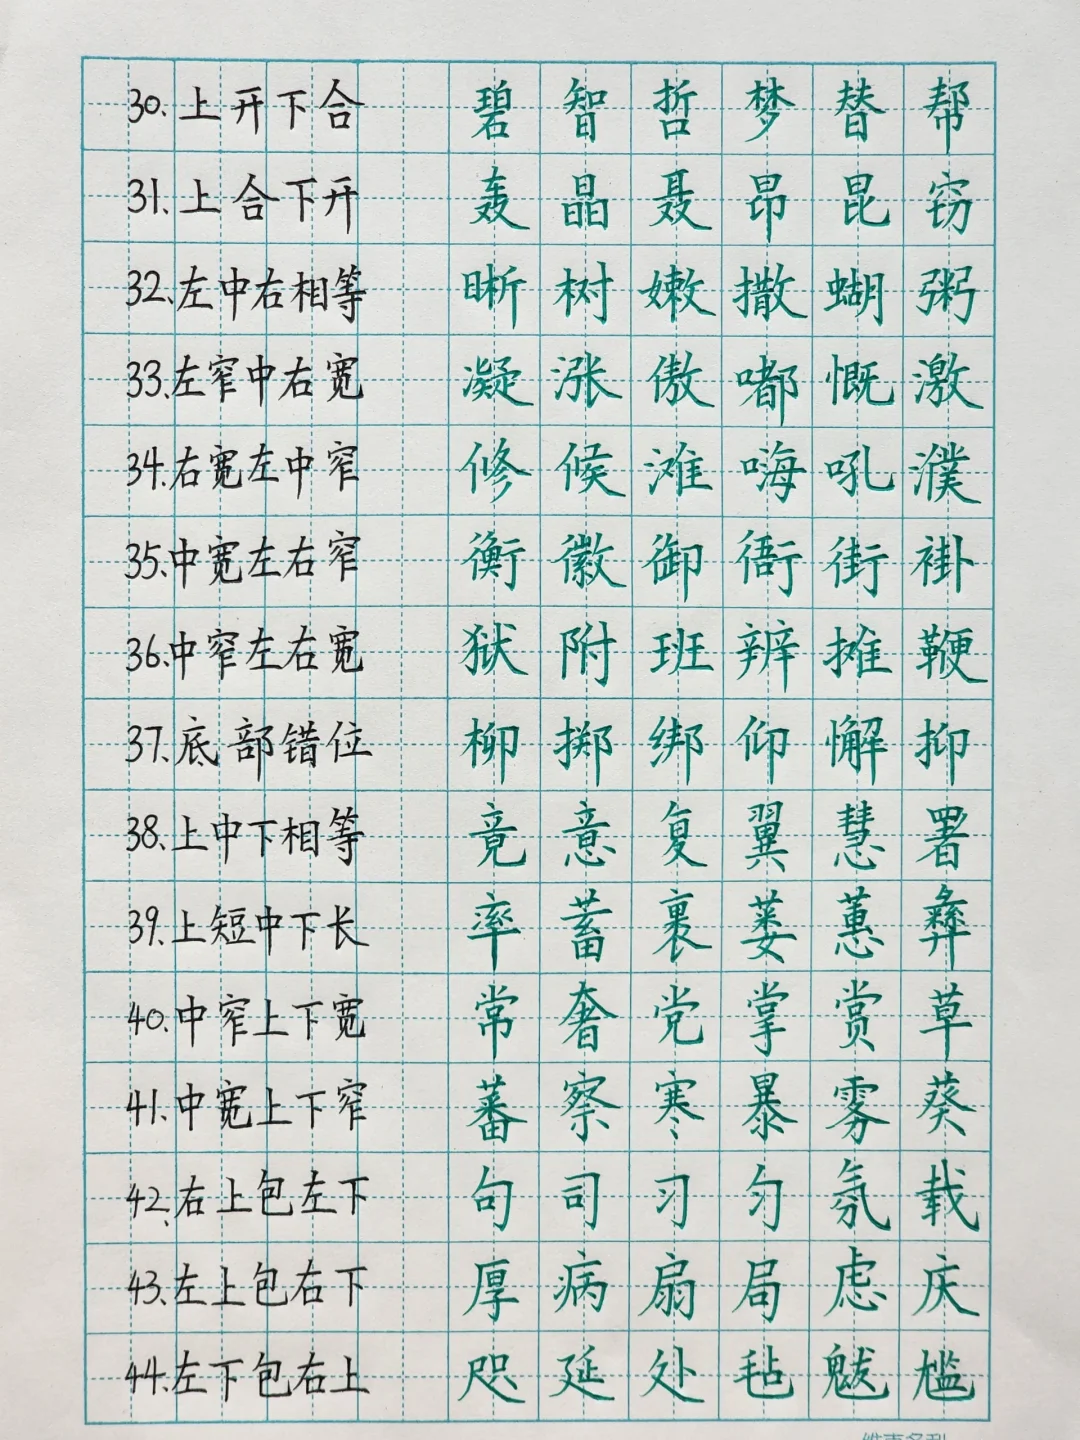 30.上开下合 碧 智 哲 梦 替 帮
31.上合下开 轰 晶 聂 昂 昆 窃
32.左中右相等 晰 树 嫩 撒 蝴 粥
33.左窄中右宽 凝 涨 傲 嘟 慨 激
34.右宽左中窄 修 候 滩 嗨 吼 濮
35.中宽左右窄 衡 徽 御 衙 街 褂
36.中窄左右宽 狱 附 班 辨 摊 鞭
37.底部错位 柳 掷 绑 仰 懈 抑
38.上中下相等 竟 意 复 翼 慧 署
39.上短中下长 率 蓄 裹 蒌 蕙 彝
40.中窄上下宽 常 奢 党 掌 赏 草
41.中宽上下窄 蕃 察 寒 暴 雾 葵
42.右上包左下 句 司 习 匀 氛 载
43.左上包右下 厚 病 扇 局 虑 庆
44.左下包右上 咫 延 处 毡 魃 尴